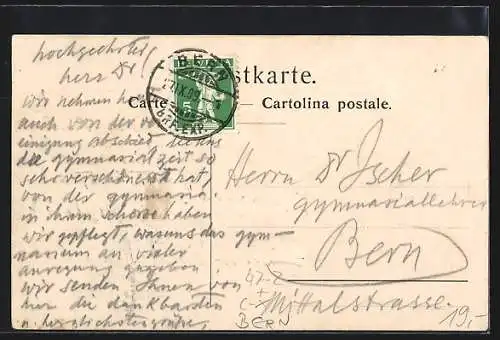 hochgeehrter
herr Dr!
wir nehmen
auch von der
einigung Abschied, die uns
die gymnasialzeit so
sehr verschönert hat,
von der gymnasia.
in ihrem schosse haben
wir gepflegt, was uns das gym-
nasium an vieler
anregung gegeben.
wir senden Ihnen von
hier die dankbarsten
u herzlichsten grüsse,
BERN
BRF. EXP.
5
Postkarte.
Carte
Cartolina postale.
Herrn Dr Ischer
gymnasiallehrer
Bern
Mittelstrasse.
BERN
19,-